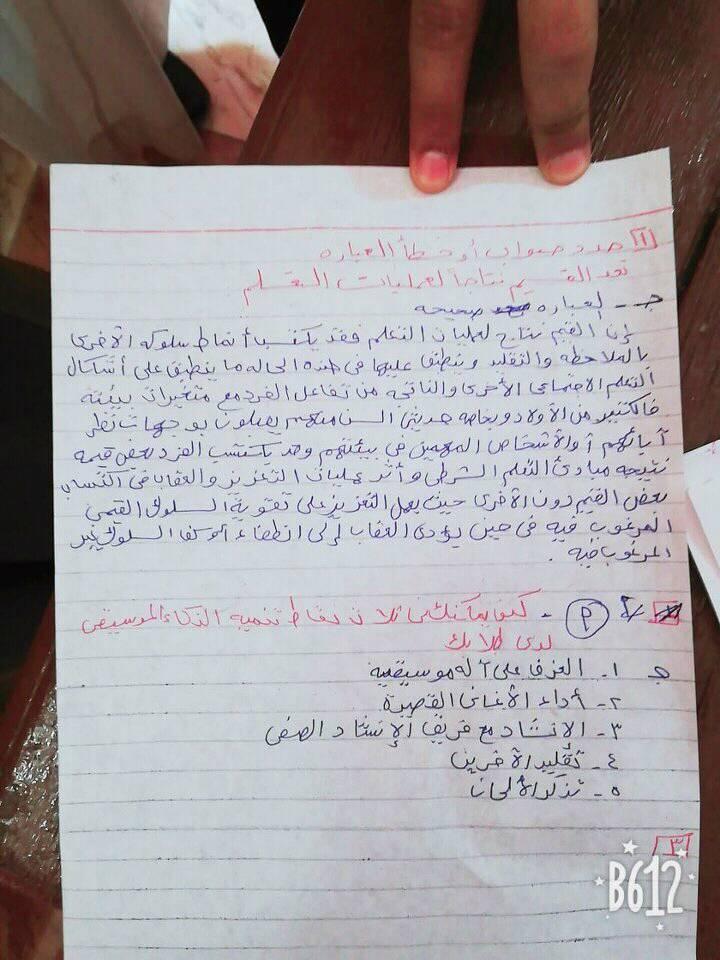 ١ حدد صواب أو خطأ العباره
تعد القيم نتاجاً لعمليات التعلم
جـ - العباره صحيحه
إن القيم نتاج لعمليات التعلم فقد يكتسب أنماط سلوكه الأخرى
بالملاحظه والتقليد وينطبق عليها في هذه الحاله ما ينطبق على أشكال
التعلم الاجتماعي الأخرى والناتجه من تفاعل الفرد مع متغيرات بيئته
فالكثير من الأولاد وبخاصه حديثي السن منهم يقبلون بوجهات نظر
آبائهم أو الأشخاص المهمين في بيئتهم وقد يكتسب الفرد بعض قيمه
نتيجه مبادئ التعلم الشرطي وأثر عمليات التعزيز والعقاب في اكتساب
بعض القيم دون الأخرى حيث يعمل التعزيز على تقوية السلوك القيمي
المرغوب فيه في حين يؤدى العقاب إلى انطفاء أو كف السلوك غير
المرغوب فيه .
٢ P - كيف يمكنك في ثلاث نقاط تنميه الذكاء الموسيقى
لدى طلابك
جـ ١- العزف على آله موسيقيه
٢- أداء الأغاني القصيرة
٣- الانشاد مع فريق الإنشاد الصفى
٤- تقليد الآخرين
٥- تذكر الألحان
٣
B612